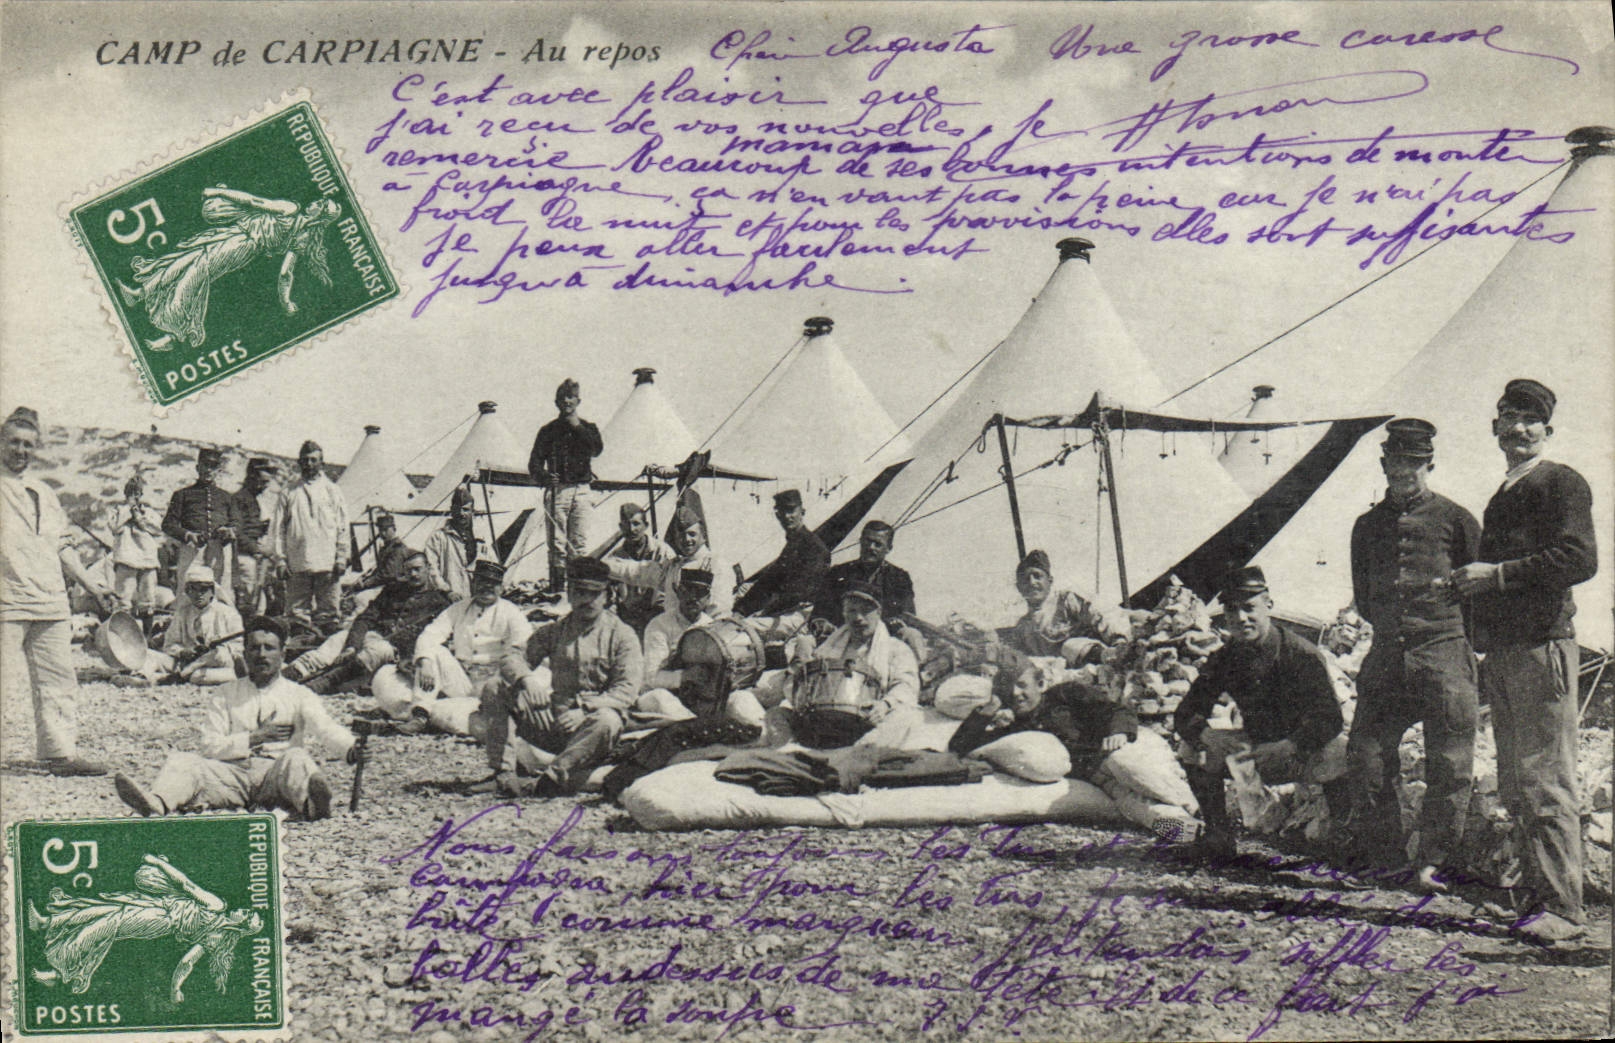 CAMP de CARPIAGNE - Au repos
Chère Augusta Une grosse caresse
C'est avec plaisir que
j'ai reçu de vos nouvelles, je
maman
remercie beaucoup de ses bonnes intentions de monter
à Carpiagne, ça n'en vaut pas la peine car je n'ai pas
froid la nuit et pour les provisions elles sont suffisantes
je peux aller facilement
jusqu'à dimanche.
REPUBLIQUE FRANÇAISE
5c
POSTES
REPUBLIQUE FRANÇAISE
5c
POSTES
Nous faisons toujours les tirs et les
hier pour les tirs, je
comme marqueur, j'entendais siffler les
balles au dessus de ma tête et de ce fait j'ai
mangé la soupe